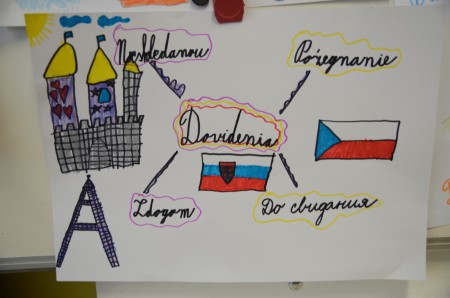 Nashledanou
Pożegnanie
Dovidenia
Zdogam
До свидания